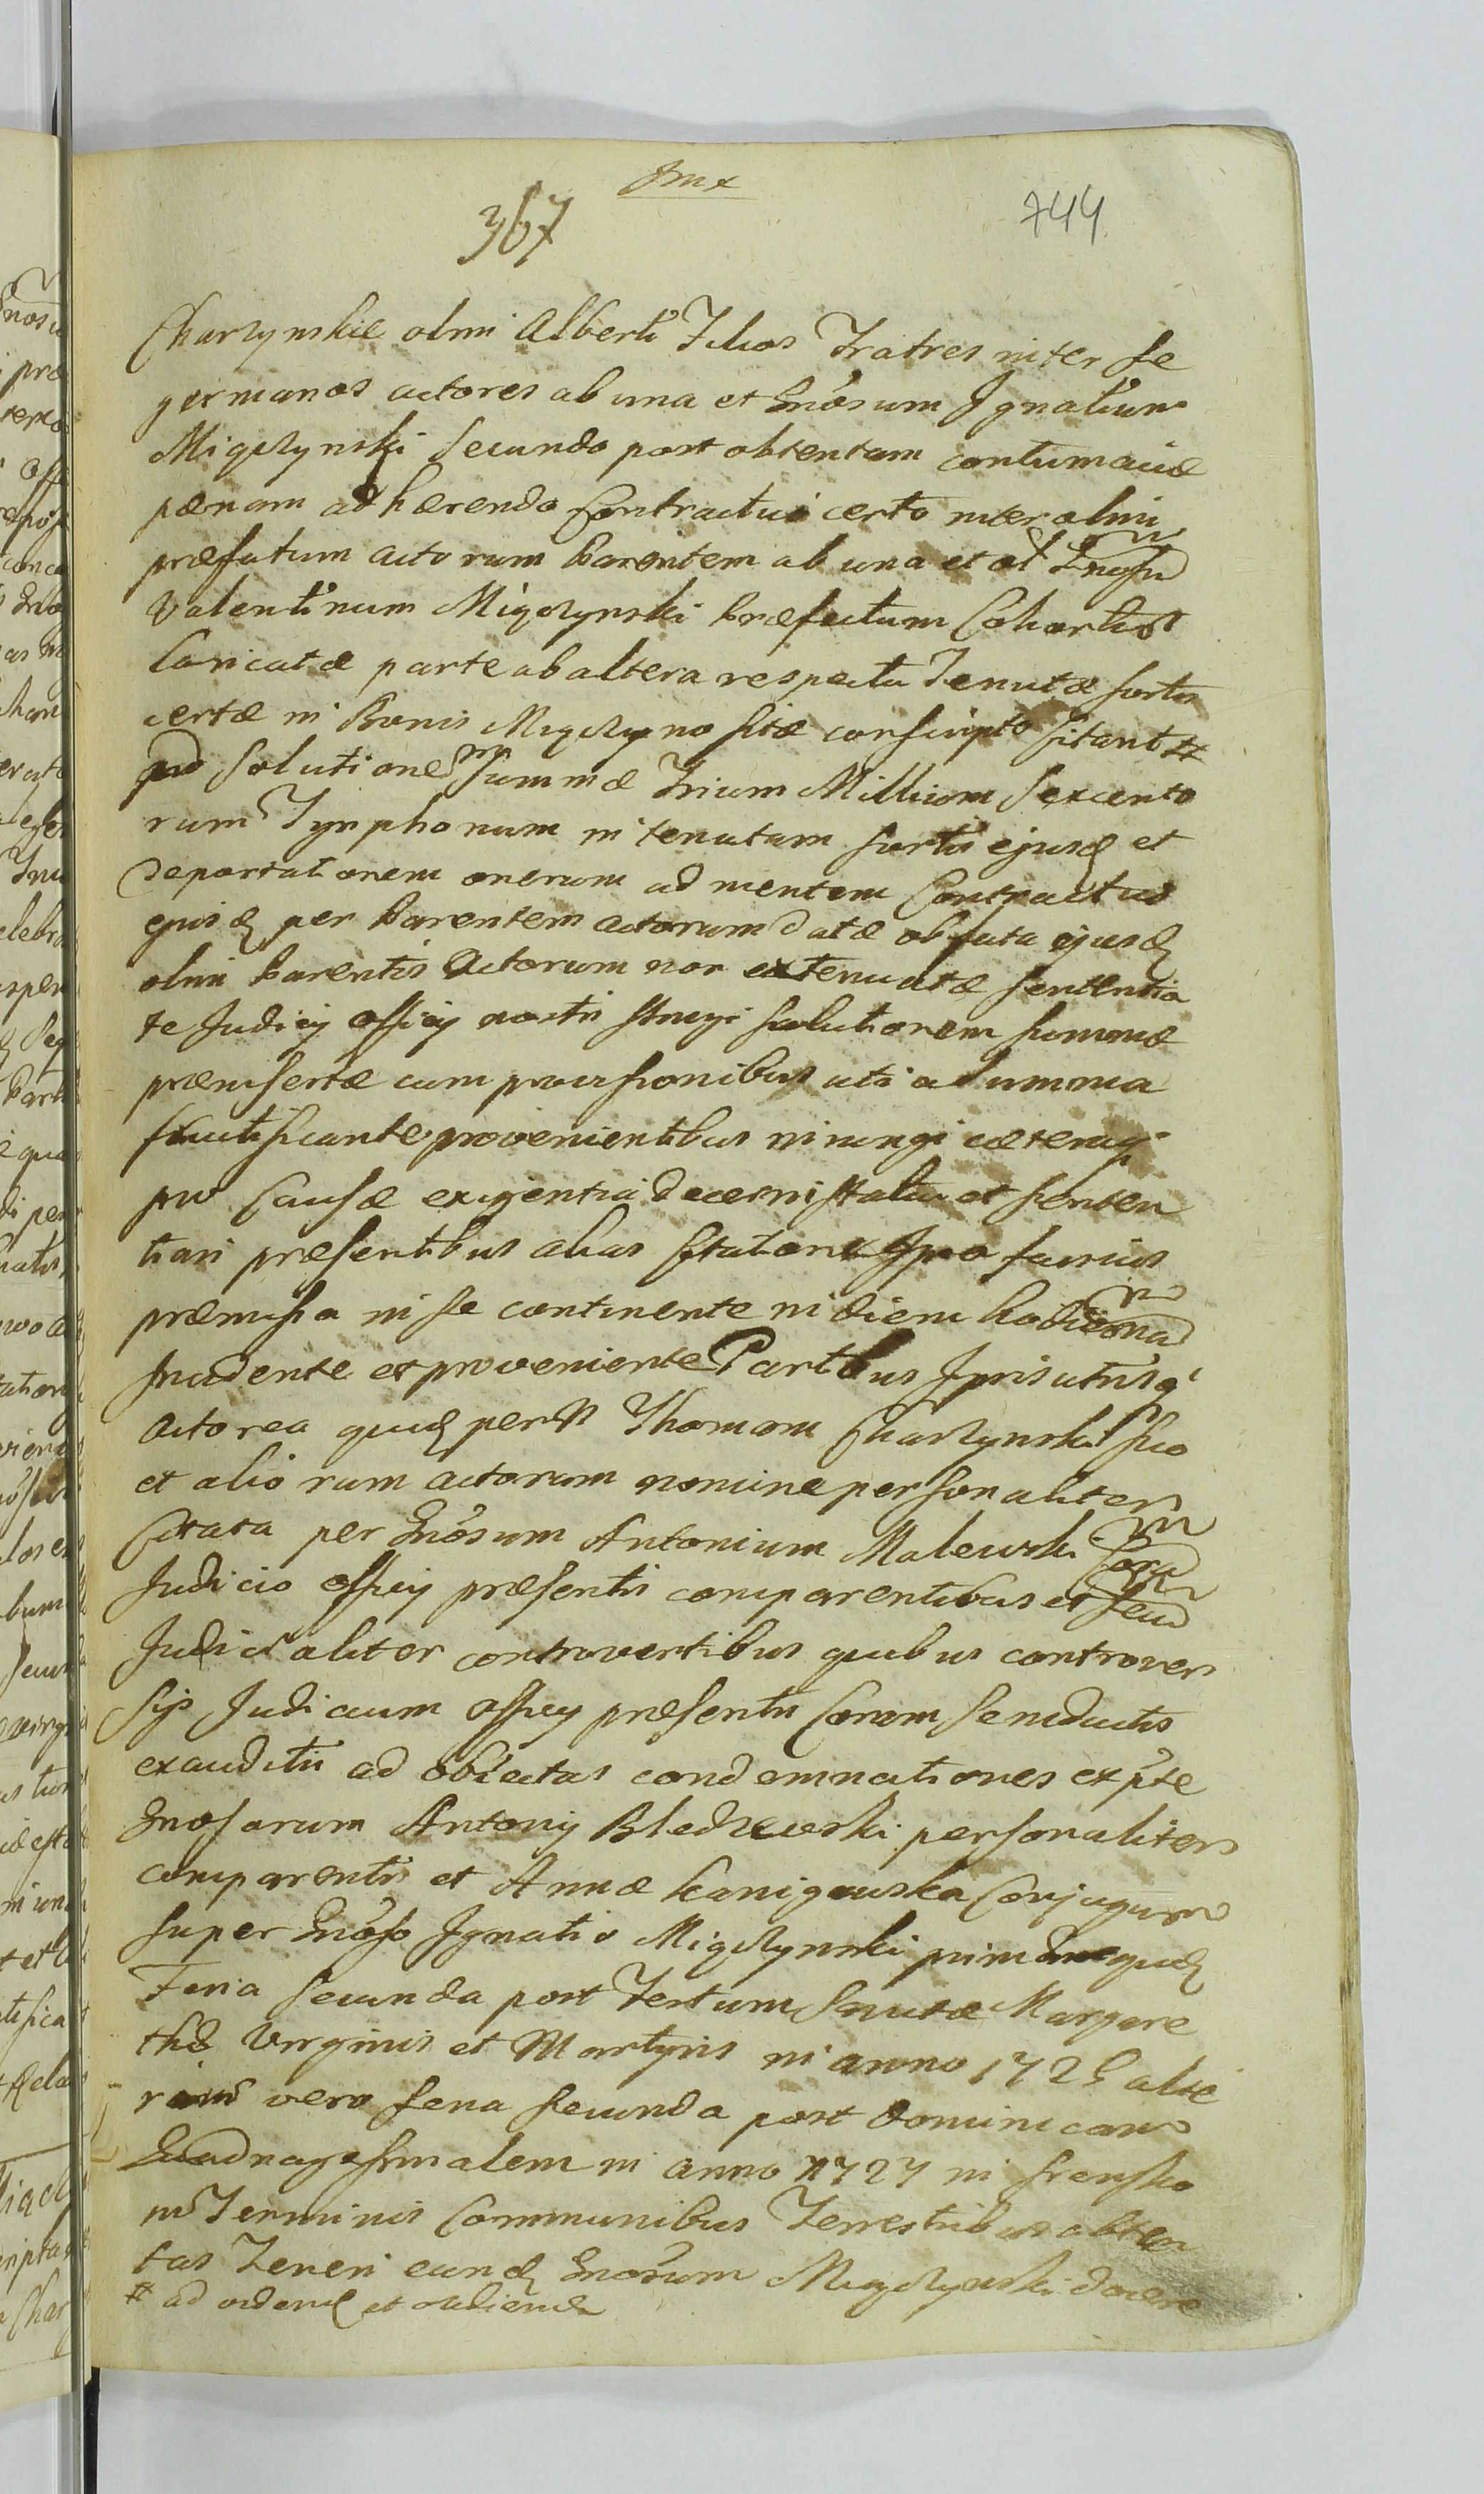 367
744
Charzynskie olim Alberti Filios Fratres inter se
germanos actores ab una et Gnosum Ignatium
Migdzynski secundo post obtentam contumaciæ
pænam adhærendo Contractui certo inter olim
præfatum actorum Parentem ab una et ol Gnosu
Valentinum Migdzynski Præfectum Cohortis
Loricatæ parte ab altera respectu Tenutæ sortis
certæ in Bonis Migdzyno sitæ conscripto citant #
ad solutionem summæ Trium Millium sexcento
rum Tynphonum in tenutam sortis ejusd et
deportationem onerum ad mentem Contractus
ejusd per Parentem actorum datæ ob fata ejusd
olim Parentis Actorum non extenuatæ sententia
te Judicy officy nostri stringi solutionem summæ
præinsertæ cum provisionibus uti a summa
fructificante provenientibus injungi cæteraq
pro Causæ exigentia decerni statui et senten
tiari præsentibus alias Citatione Ipsa fusius
præmissa in se continente in diem hodiernam
incidente et proveniente Partibus Ipsis utrisq
Actorea quid per N Thomam Charzynski suo
et aliorum actorum nomine personaliter
Citata per Gnosum Antonium Malewski Coram
Judicio officy præsentis comparentibus et secum
Judicialiter controvertibus quibus controver
sys Judicium officy præsentis Coram se inductis
exauditis ad obiectas condemnationes ex pte
Gnosorum Antony Bledzewski personaliter
comparentis et Annæ Kanigowska Conjugum
super Gnoso Ignatio Migdzynski primam quid
Feria Secunda post Festum Sanctæ Margare
thæ Virginis et Martyris in anno 1725 alte
ram vero feria secunda post Dominicam
Quadragesimalem in anno 1727 in Srensko
in Terminis Communibus Terrestribus obten
tas Teneri eund Gnosum Migdzynski docere
# ad vidend et audiend